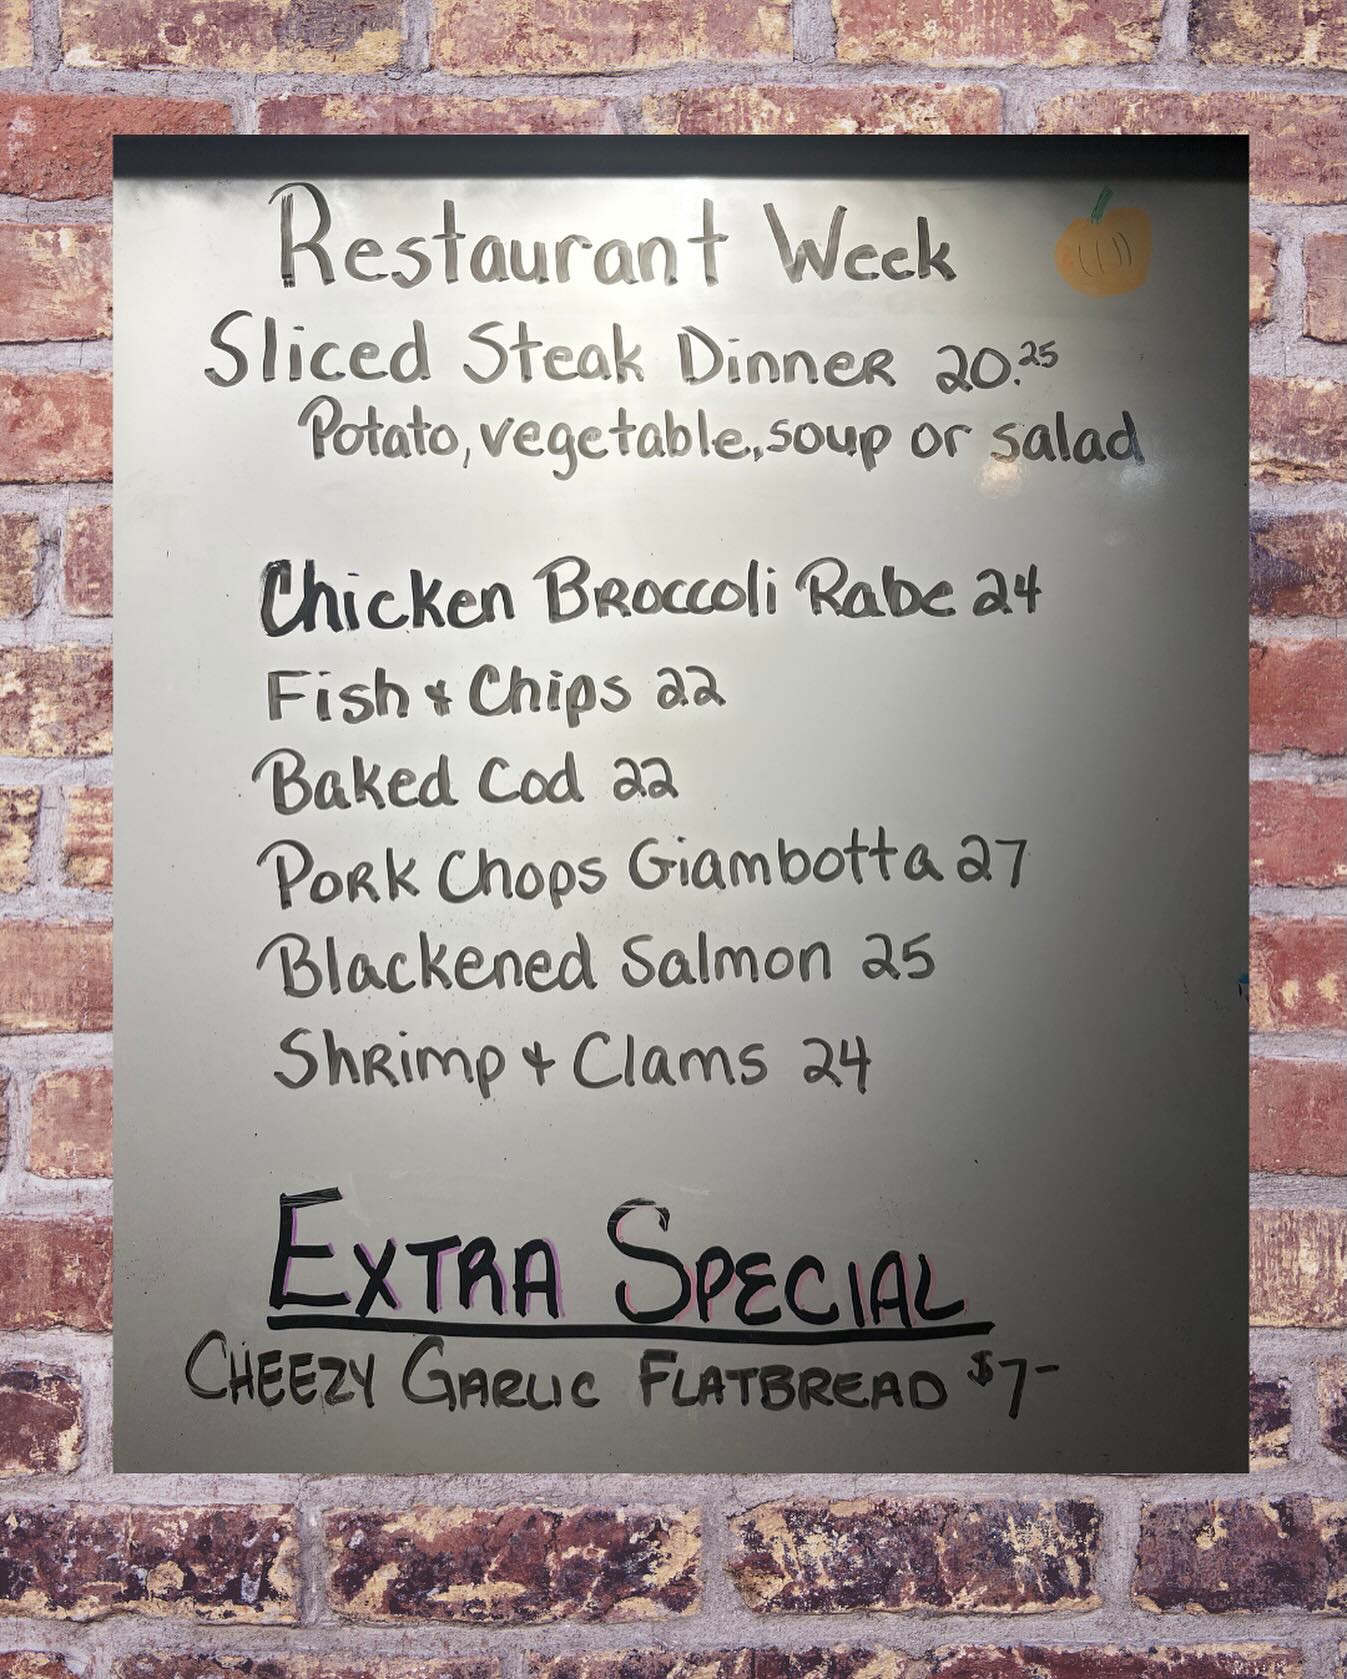 Restaurant Week
Sliced Steak Dinner 20.25
Potato, vegetable, soup or salad
Chicken Broccoli Rabe 24
Fish & Chips 22
Baked Cod 22
Pork Chops Giambotta 27
Blackened Salmon 25
Shrimp & Clams 24
EXTRA SPECIAL
CHEEZY GARLIC FLATBREAD $7-